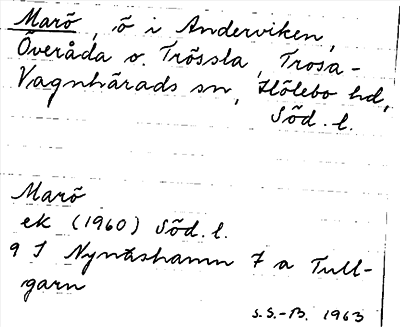 Marö, ö i Anderviken,
Överåda o. Trössla, Trosa-
Vagnhärads sn, Hölebo hd,
Söd. l.
Marö
ek (1960) Söd. l.
9 I Nynäshamn 7 a Tull-
garn
S.S.-B. 1963